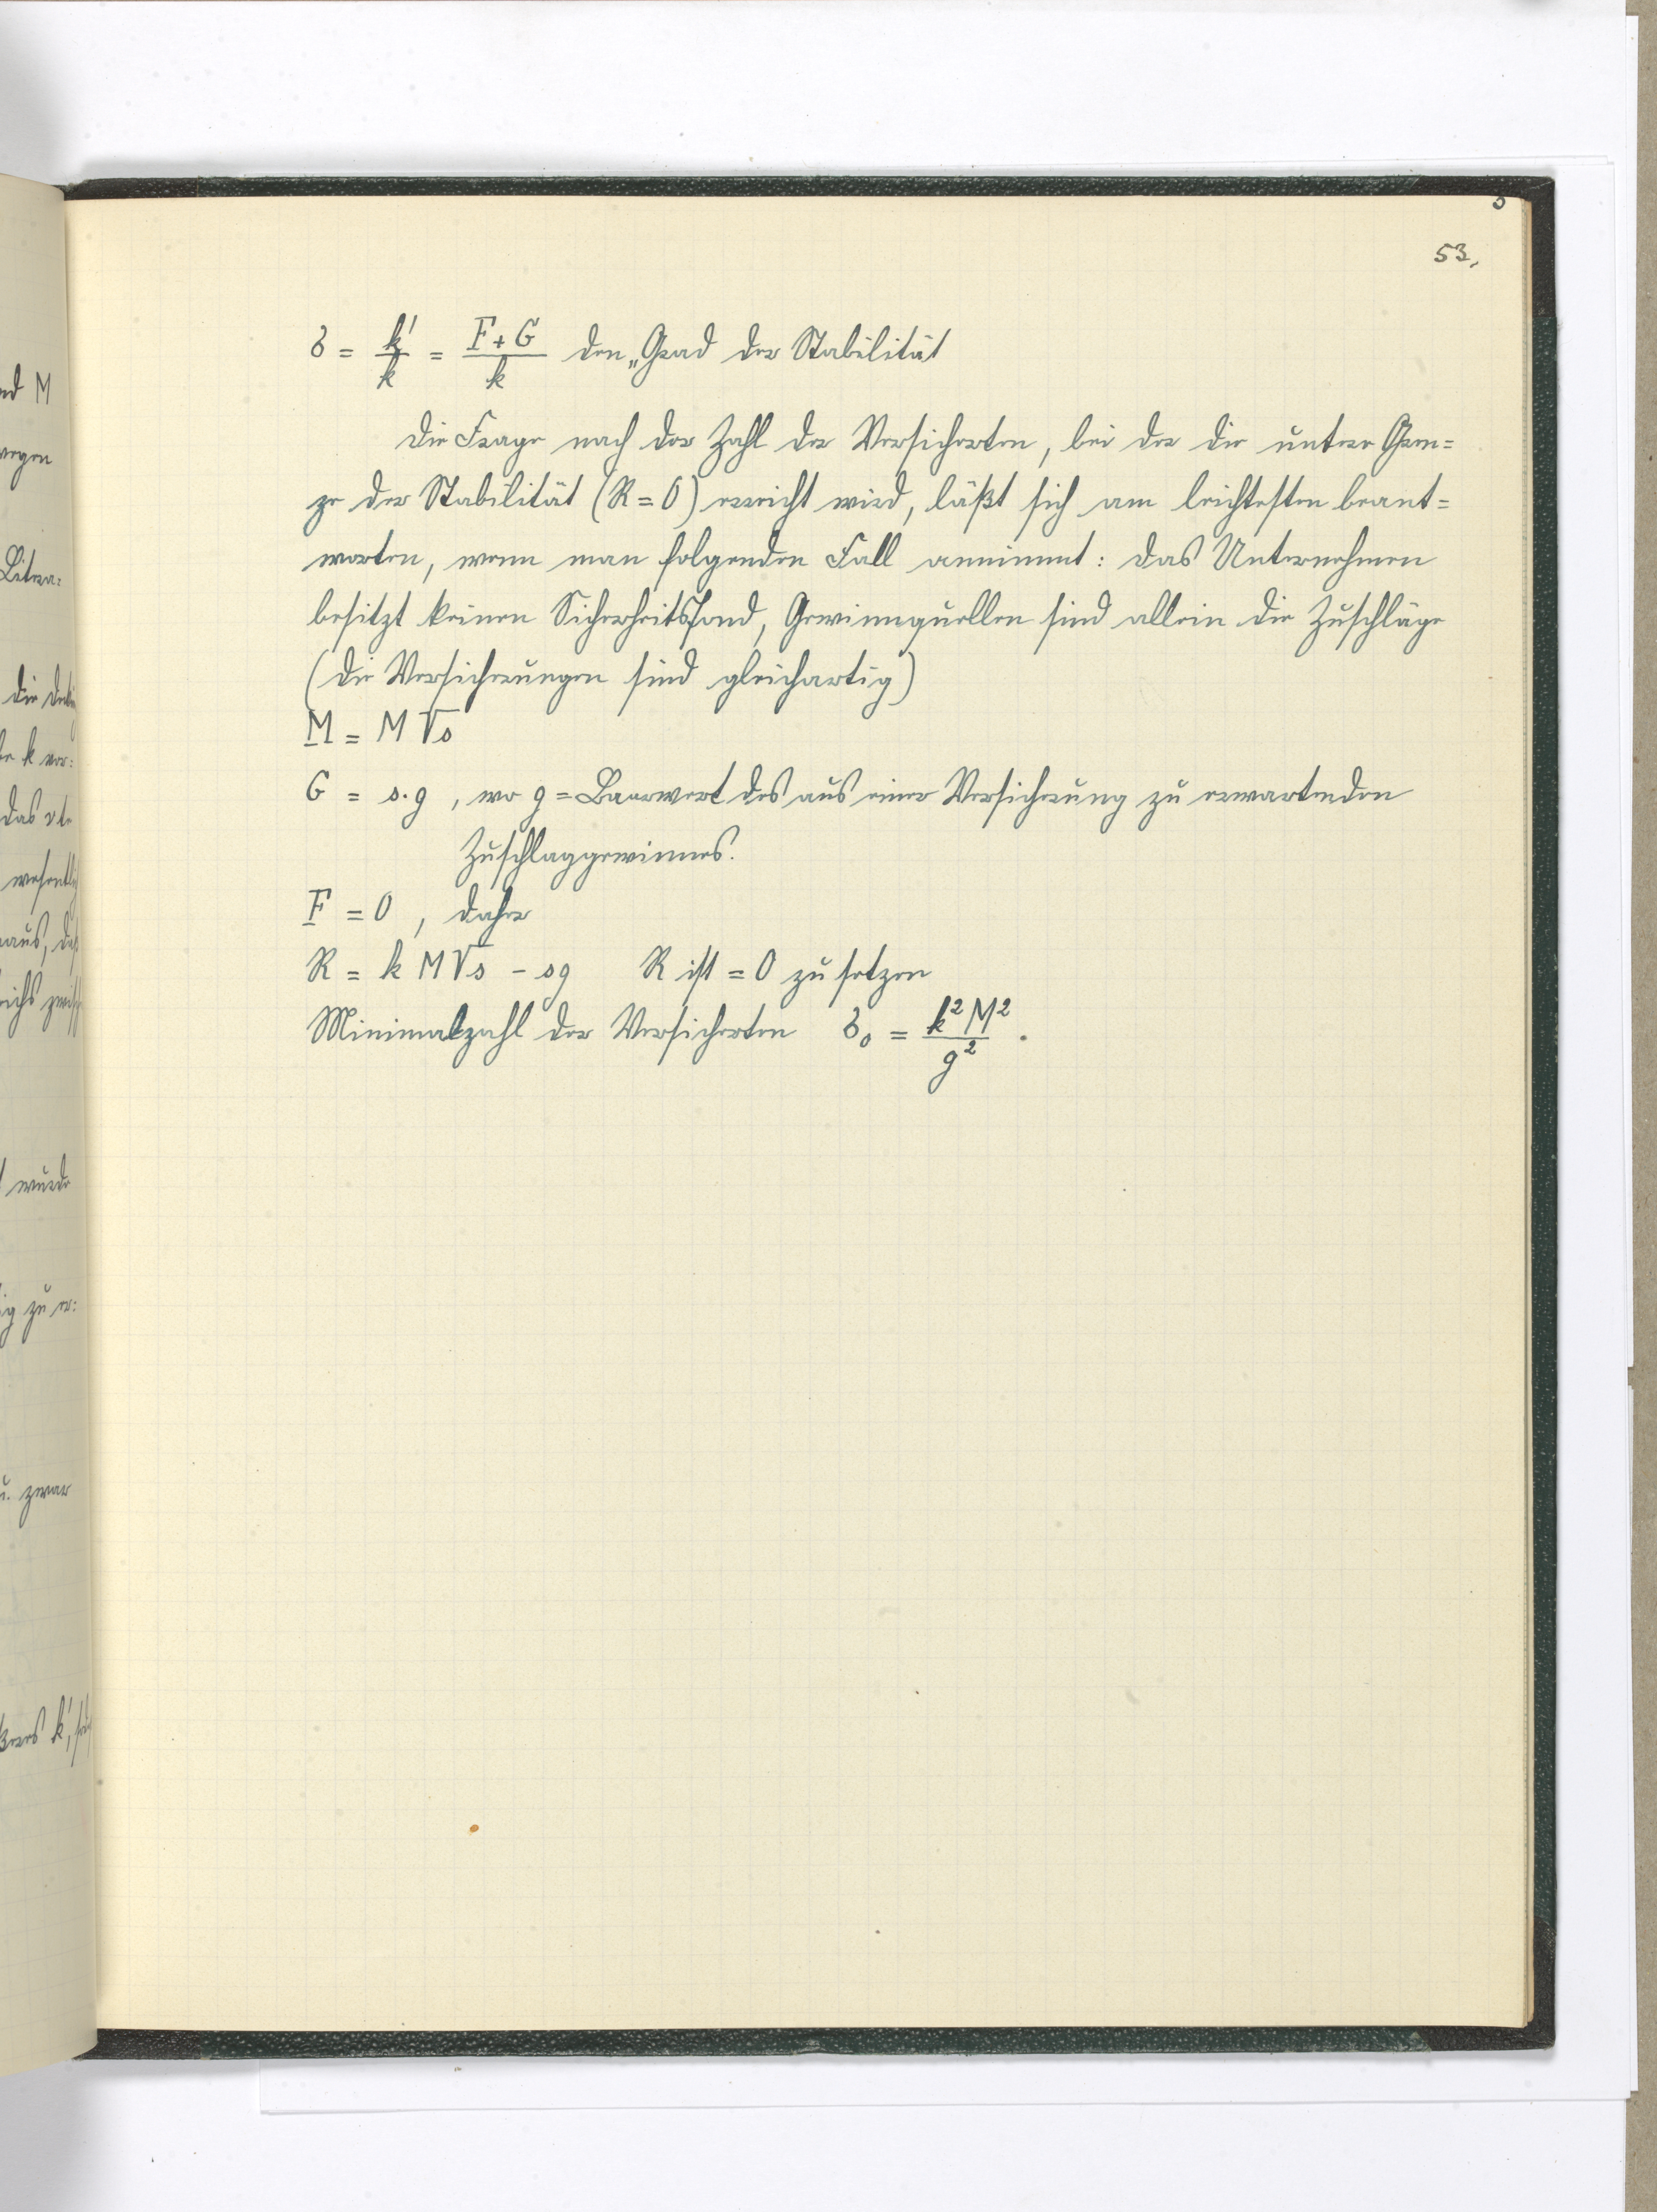 53.
s = k'/k = F+G/k den „Grad der Stabilität
Die Frage nach der Zahl der Versicherten, bei der die untere Gren=
ze der Stabilität (R=0) erreicht wird, läßt sich am leichtesten beant=
worten, wenn man folgenden Fall annimmt: Das Unternehmen
besitzt keinen Sicherheitsfond, Gewinnquellen sind allein die Zuschläge
(Die Versicherungen sind gleichartig)
M = M √s
G = s.g , wo g = Baarwert des aus einer Versicherung zu erwartenden
Zuschlaggewinnes.
F = 0 , daher
R = k M √s - sg R ist = 0 zu setzen
Minimalzahl der Versicherten s₀ = k²M²/g² .
nd M
wegen
Litera=
die
k vor=
das
aus,
wurde
ig zu er=
u. zwar
k',